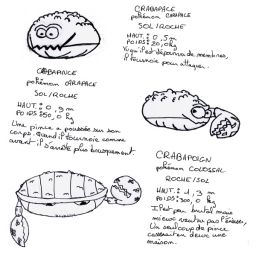 CRABAPACE
pokémon CARAPACE
SOL/ROCHE
HAUT: 0,5m
POIDS: 20,0kg
Vu qu'il est dépourvu de membres,
il tournoie pour attaquer.
CRABAPINCE
pokémon CARAPACE
SOL/ROCHE
HAUT: 0,9m
POIDS: 50,0 kg
Une pince a poussée sur son
corps. Quand il tournoie comme
avant il s'arrête plus brusquement.
CRABAPOIGN
pokémon COLOSSAL
ROCHE/SOL
HAUT: 1,3m
POIDS: 300,0 kg
Il est pas brutal mais
mieux vaut pas l'énerver,
Un seul coup de pince
casserait en deux une
maison.